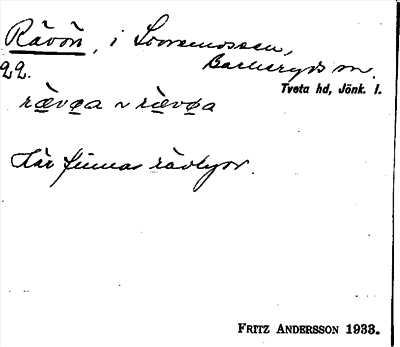 Rävön, i Sören­mossen,
Barkeryds sn.
22.
Tveta hd, Jönk. l.
rävöa ~ rävöa
Här finnas rävlyor.
FRITZ ANDERSSON 1933.